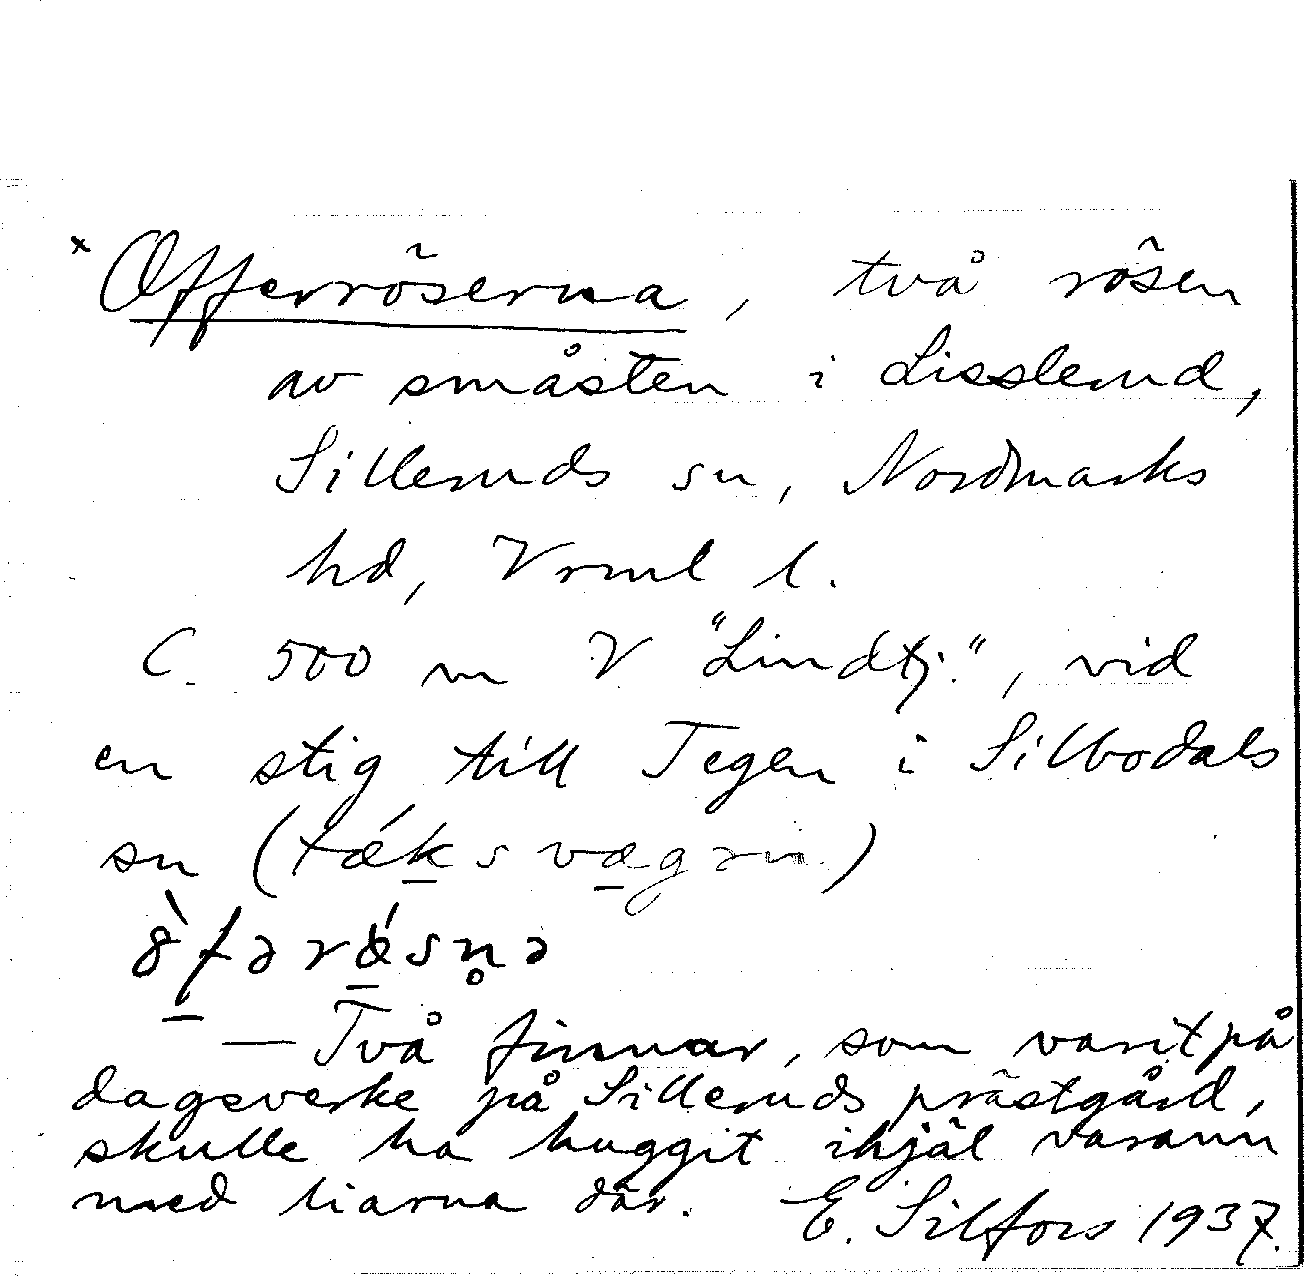 × Offerröserna, två rösen
av småsten i Lisslerud,
Silleruds sn, Nordmarks
hd, Vrml l.
C. 500 m V "Lindtj.", vid
en stig till Tegen i Silbodals
sn (tǽksvægən)
— Två finnar, som varit på
dagsverke på Silleruds prästgård,
skulle ha huggit ihjäl varann
med liarna där. E. Silfors 1937.